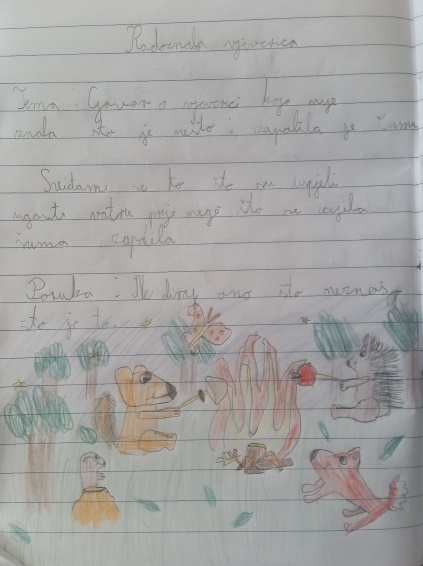 Radoznala vjeverica
Tema : Govori o vjeverici koja nije
znala što je nešto i zapalila je šumu
Sviđa mi se to što su uspjeli
ugasiti vatru prije nego što se cijela
šuma zapalila
Poruka : Ne diraj ono što neznaš
što je to.